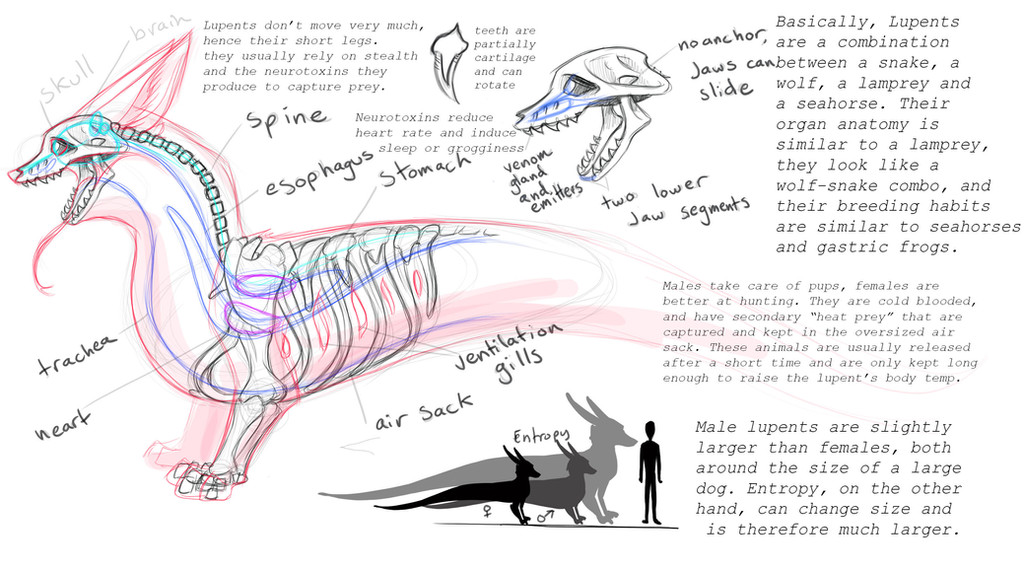 skull
brain
Lupents don't move very much,
hence their short legs.
they usually rely on stealth
and the neurotoxins they
produce to capture prey.
teeth are
partially
cartilage
and can
rotate
no anchor,
Jaws can
slide
Basically, Lupents
are a combination
between a snake, a
wolf, a lamprey and
a seahorse. Their
organ anatomy is
similar to a lamprey,
they look like a
wolf-snake combo, and
their breeding habits
are similar to seahorses
and gastric frogs.
Spine
Neurotoxins reduce
heart rate and induce
sleep or grogginess
esophagus
stomach
venom
gland
and
emitters
two lower
Jaw segments
Males take care of pups, females are
better at hunting. They are cold blooded,
and have secondary “heat prey” that are
captured and kept in the oversized air
sack. These animals are usually released
after a short time and are only kept long
enough to raise the lupent's body temp.
trachea
heart
ventilation
gills
air sack
Entropy
♀
♂
Male lupents are slightly
larger than females, both
around the size of a large
dog. Entropy, on the other
hand, can change size and
is therefore much larger.